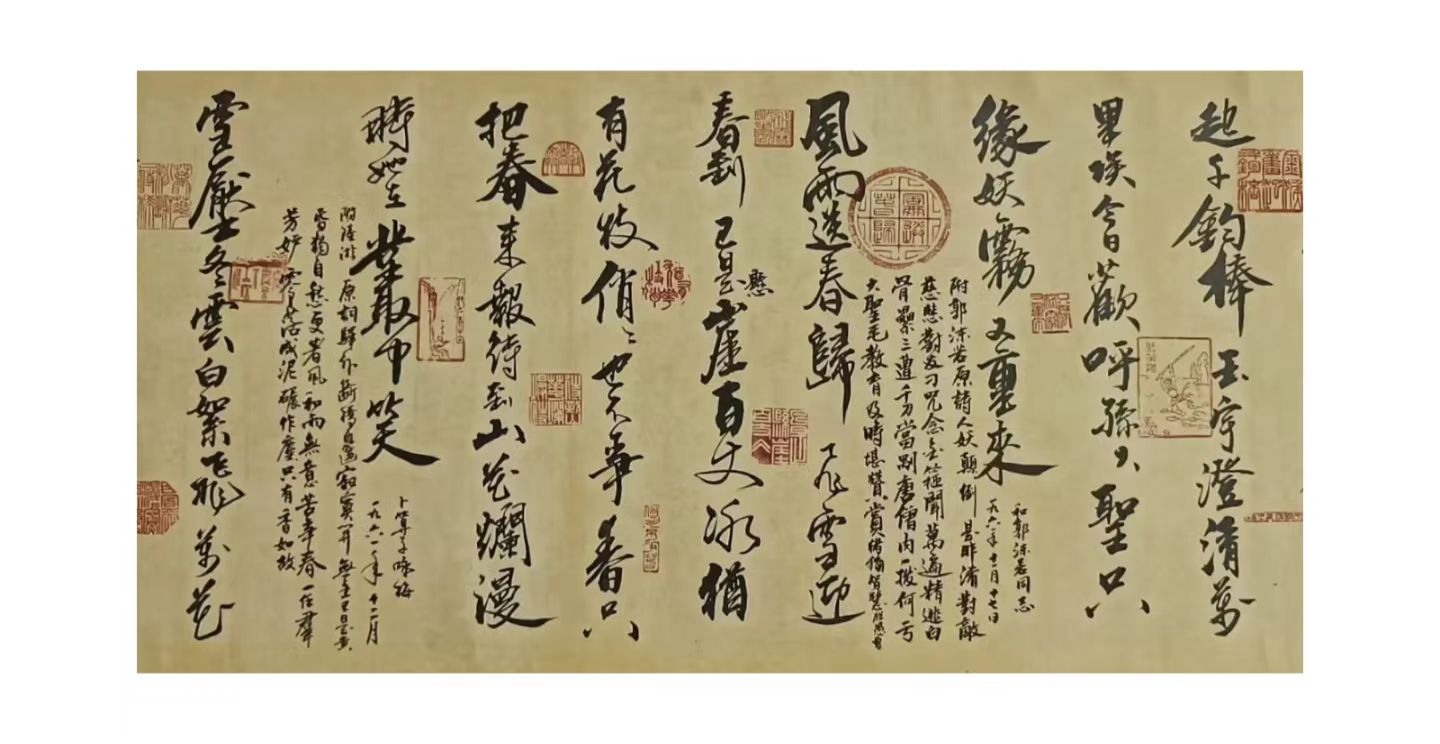 起千鈞棒玉宇澄清萬
里埃今日歡呼孫大聖只
緣妖霧又重來
和郭沫若同志
一九六一年十一月十七日
附郭沫若原詩人妖顛倒是非淆對敵
慈悲對友刁咒念金箍聞萬遍精逃白
骨纍三遭千刀當剮唐僧肉一拔何亏
大聖毛教育及時堪讚賞猪猶智慧勝愚曹
風雨送春歸飛雪迎
春到已是懸崖百丈冰猶
有花枝俏〻也不爭春只
把春來報待到山花爛漫
時她在叢中笑
卜算子咏梅
一九六一年十二月
附陸游原詞驛外斷橋邊寂寞開無主已是黃
昏獨自愁更著風和雨無意苦爭春一任群
芳妒零落成泥碾作塵只有香如故
雪壓冬雲白絮飛萬花